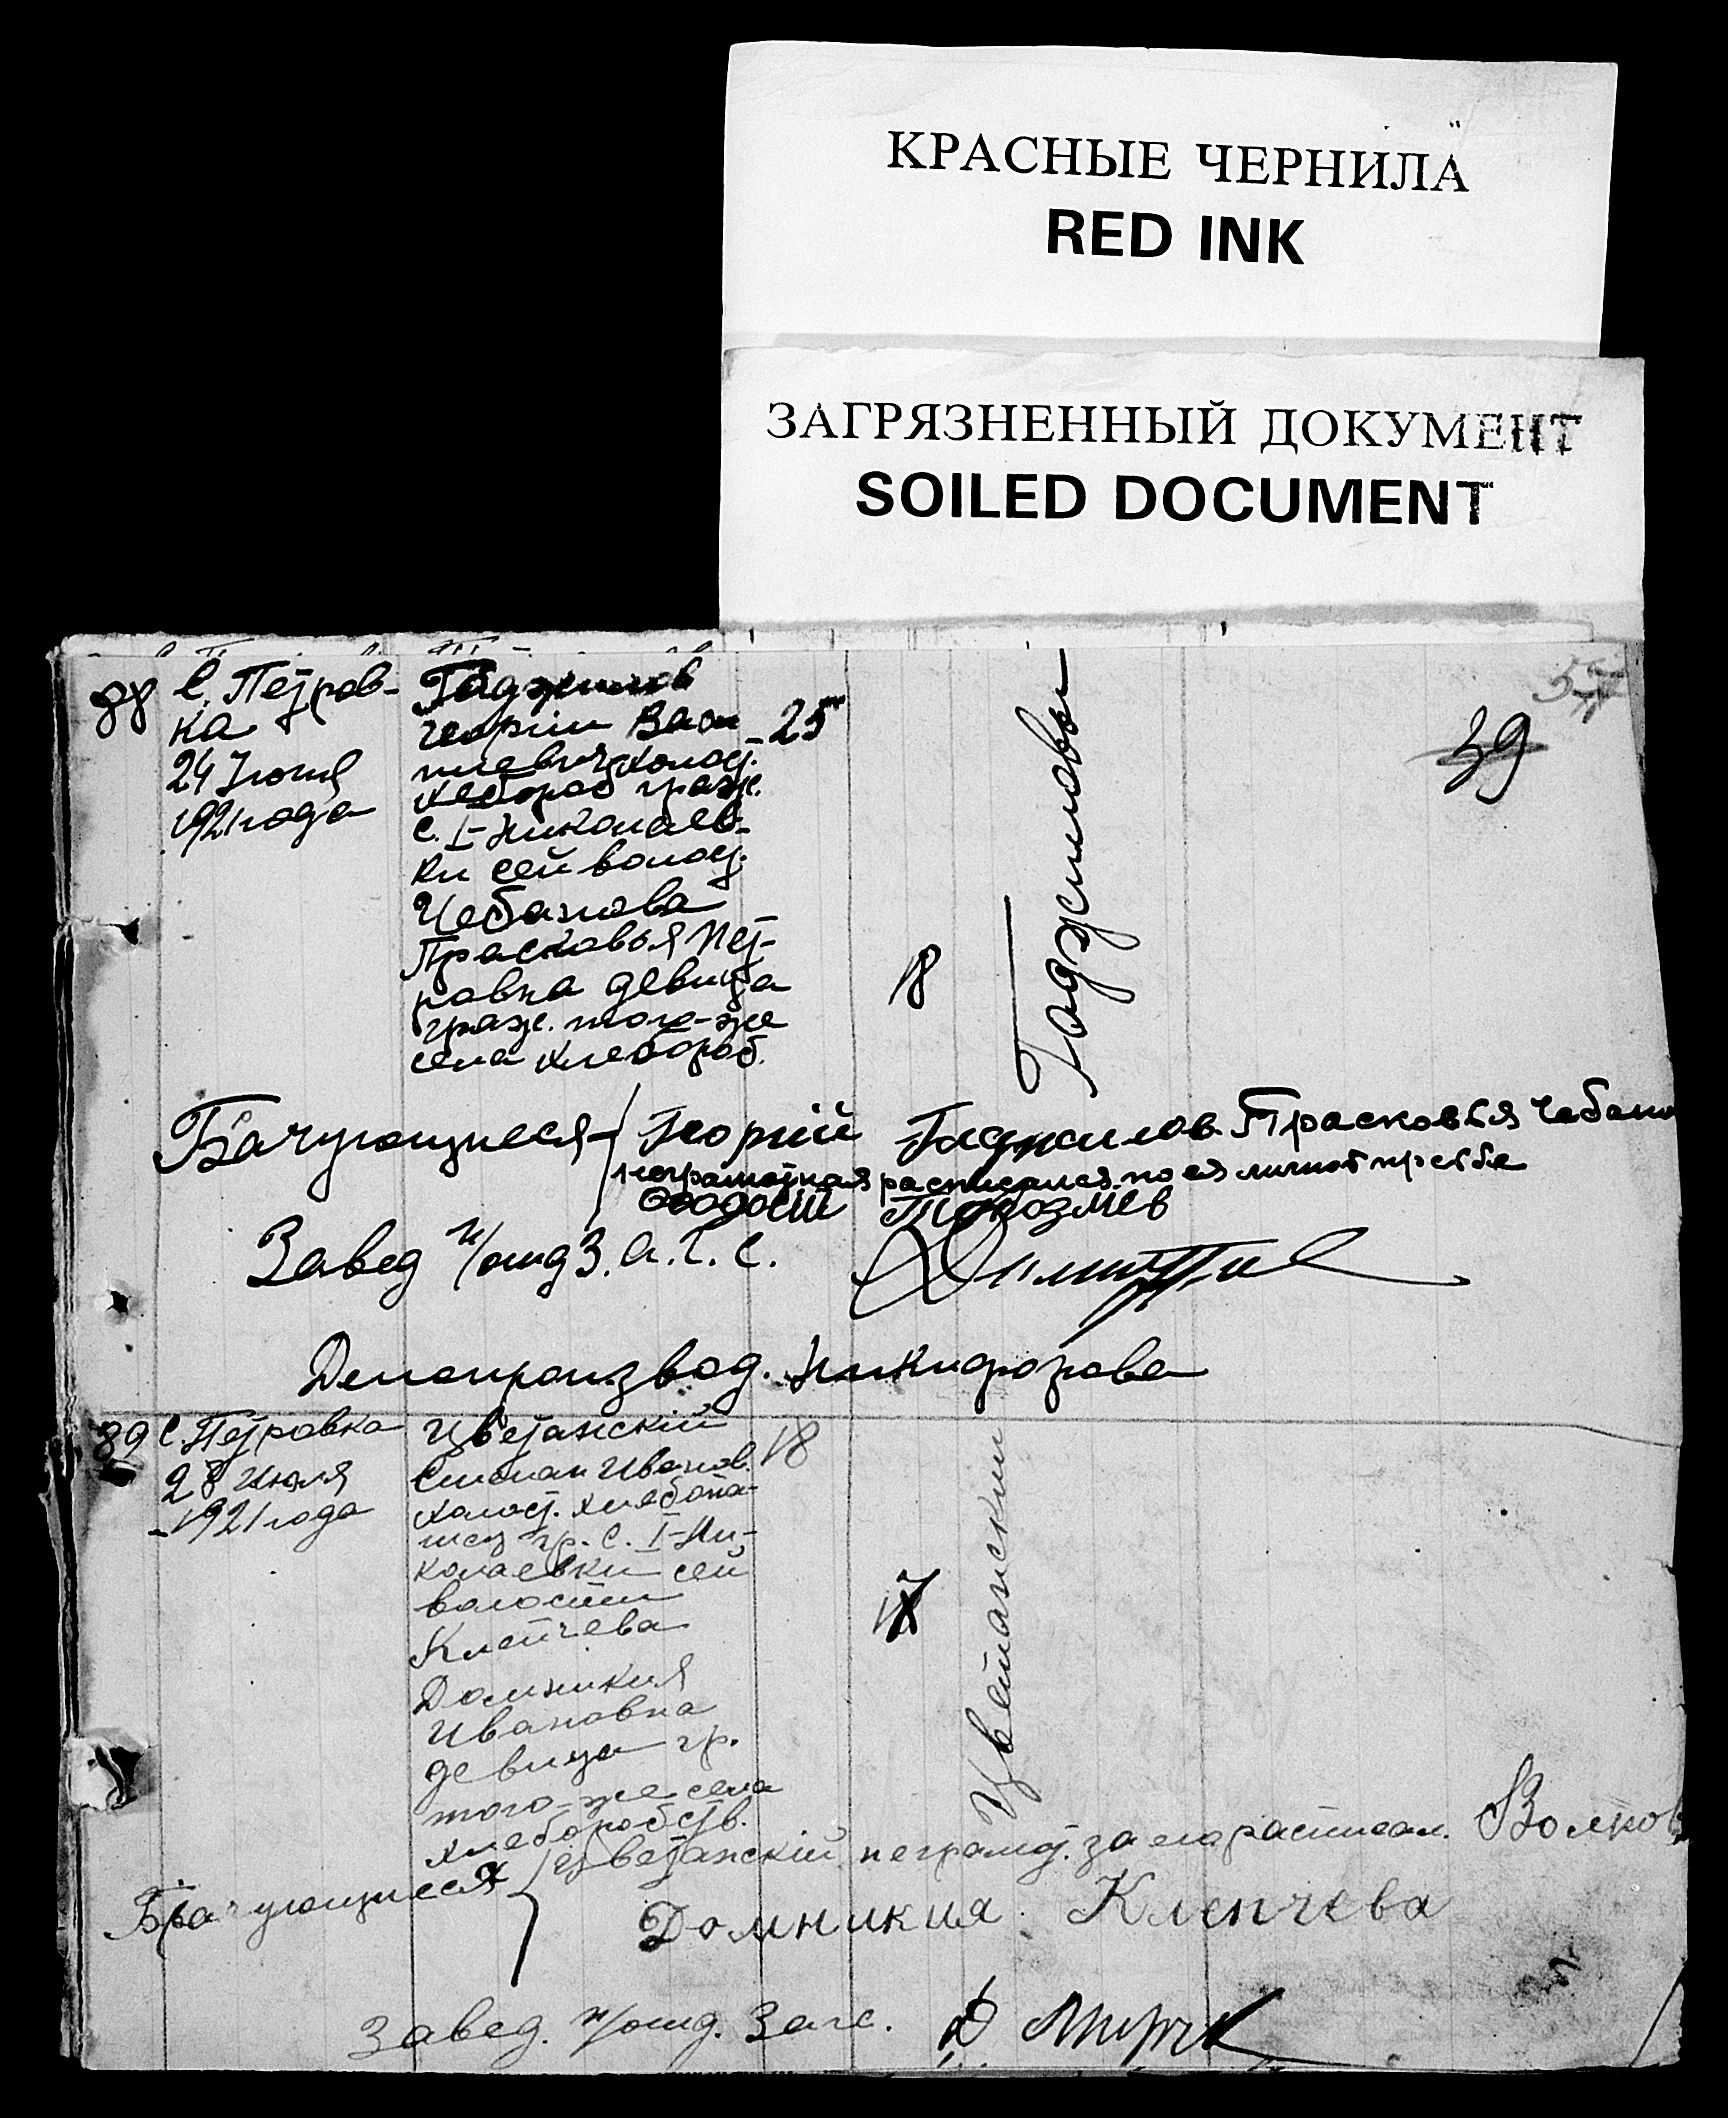 КРАСНЫЕ ЧЕРНИЛА
RED INK
ЗАГРЯЗНЕННЫЙ ДОКУМЕНТ
SOILED DOCUMENT
57
39
88
с. Петров-
ка
24 Июня
1921 года
Гаджилов
Георгий Васи
льевич холост.
хлебороб граж.
с. I-Николаев-
ки сей волост.
25
Чебанова
Прасковья Пет-
ровна девица
граж. того-же
села хлебороб.
18
Гаджиловы
Брачующиеся
Георгий Гаджилов Прасковья Чебано
неграмотная расписался по ея личной просьбе
Феодосий
Завед п/отд З.А.Г.С.
Делопроизвод. Никифорова
89
с. Петровка
28 Июля
1921 года
Цветанскій
Степан Иванов.
холост. хлебопа-
шец гр. с. I-Ни-
колаевки сей
волости
18
Клепчева
Домникия
Ивановна
девица гр.
того-же села
хлеборобств.
17
Цветанскии
Брачующиеся
Цветанскій неграмот. за его расписал. Волков
Домникия Клепчева
Завед. п/отд. Загс.